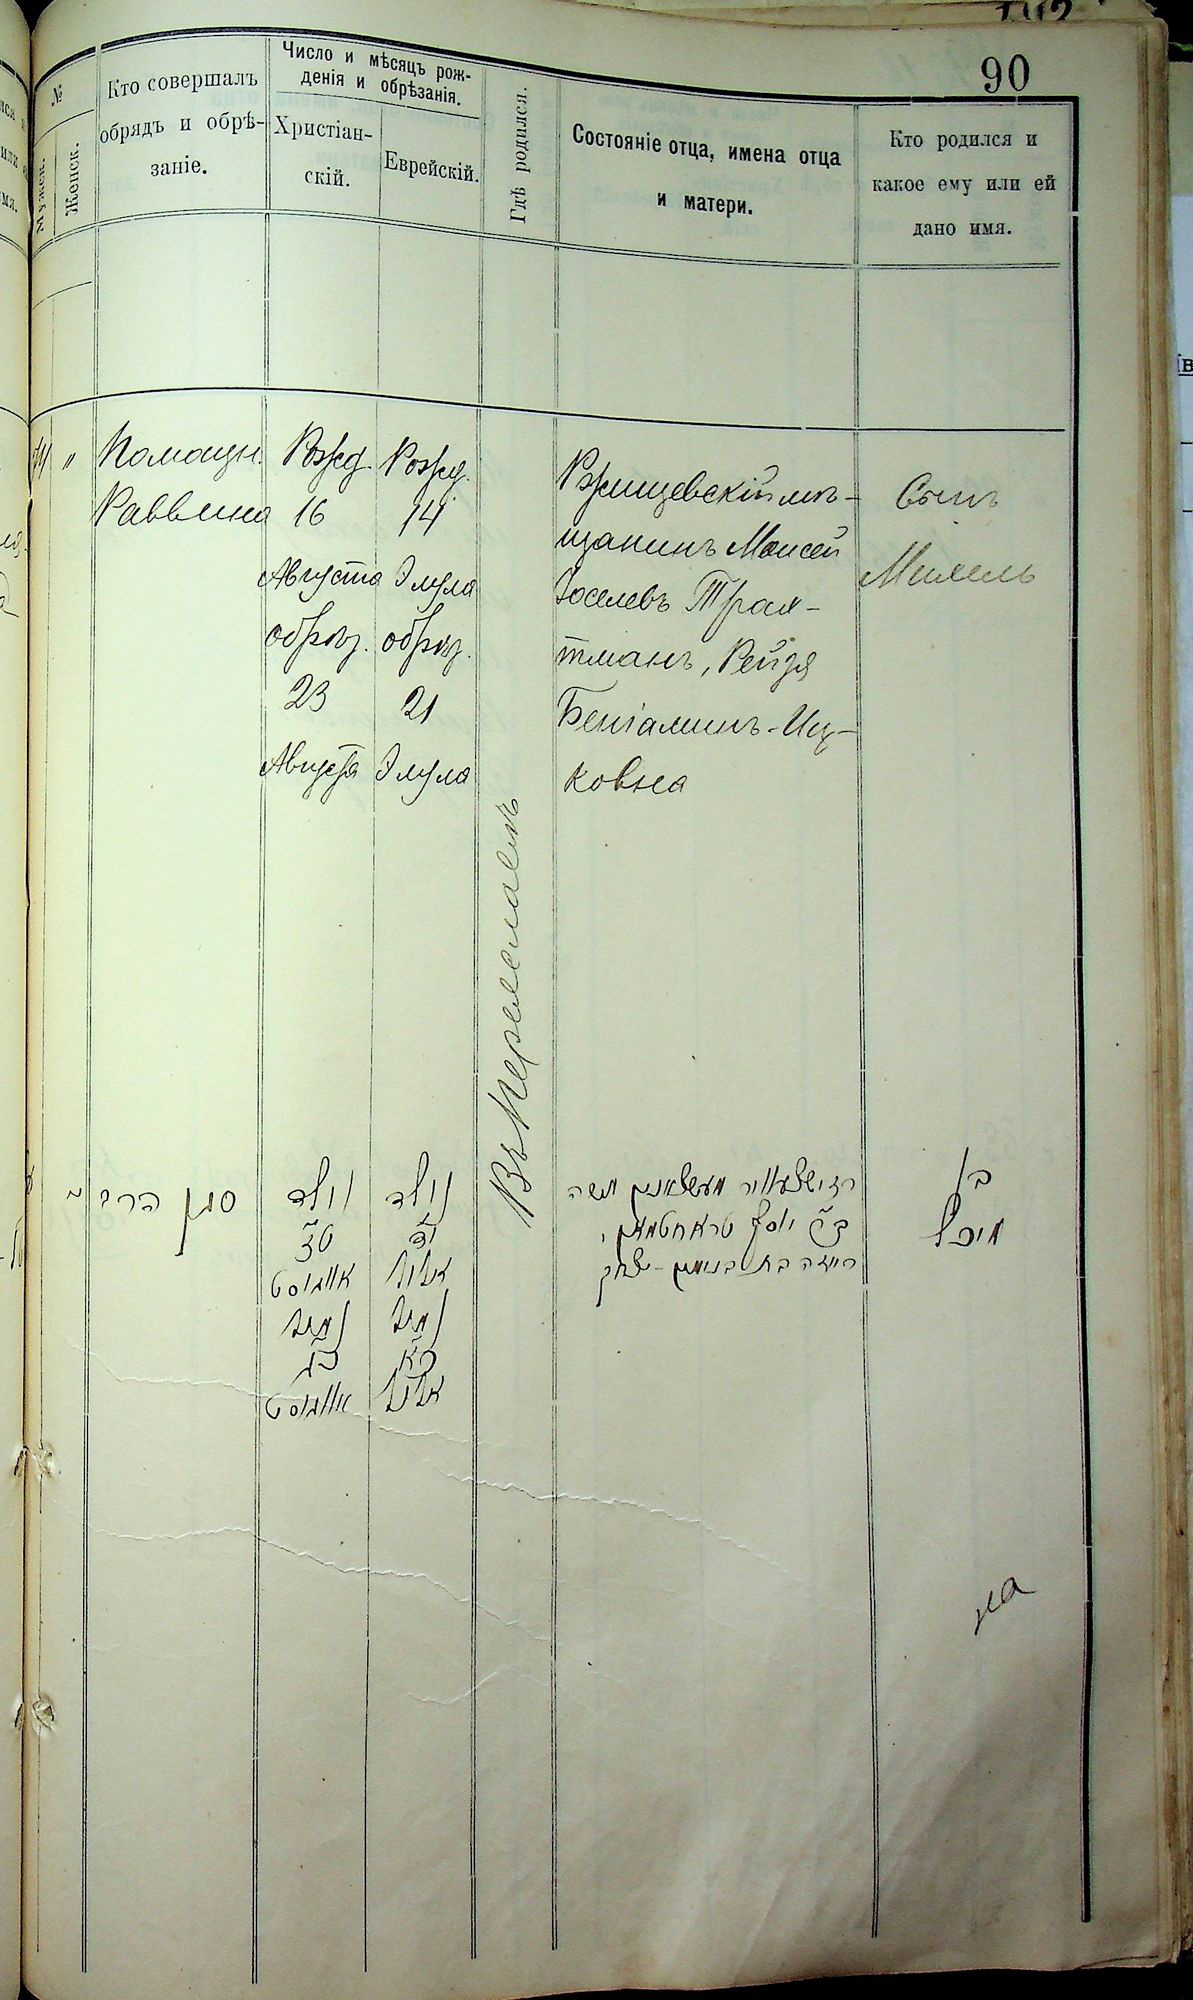 90
№
Мужск.
Женск.
Кто совершалъ
обрядъ и обрѣ-
заніе.
Число и мѣсяцъ рож-
денія и обрѣзанія.
Христіан-
скій.
Еврейскій.
Гдѣ родился.
Состояніе отца, имена отца
и матери.
Кто родился и
какое ему или ей
дано имя.
"
Помощн.
Раввина
Рожд.
16
Августа
обрѣз.
23
Августа
Рожд.
14
Элула
обрѣз.
21
Элула
Въ Переяславѣ
Ржищевскій мѣ-
щанинъ Моисей
Іоселевъ Трах-
тманъ, Рейзя
Беніаминъ-Иц-
ковна
Сынъ
Михель
סגן הרב
נולד
טז
אויגוסט
נמול
כג
אויגוסט
נולד
יד
אלול
נמול
כא
אלול
משה
יוסף טראחטמאן,
רייזה בת בנימין-יצחק
בן
מיכל
на